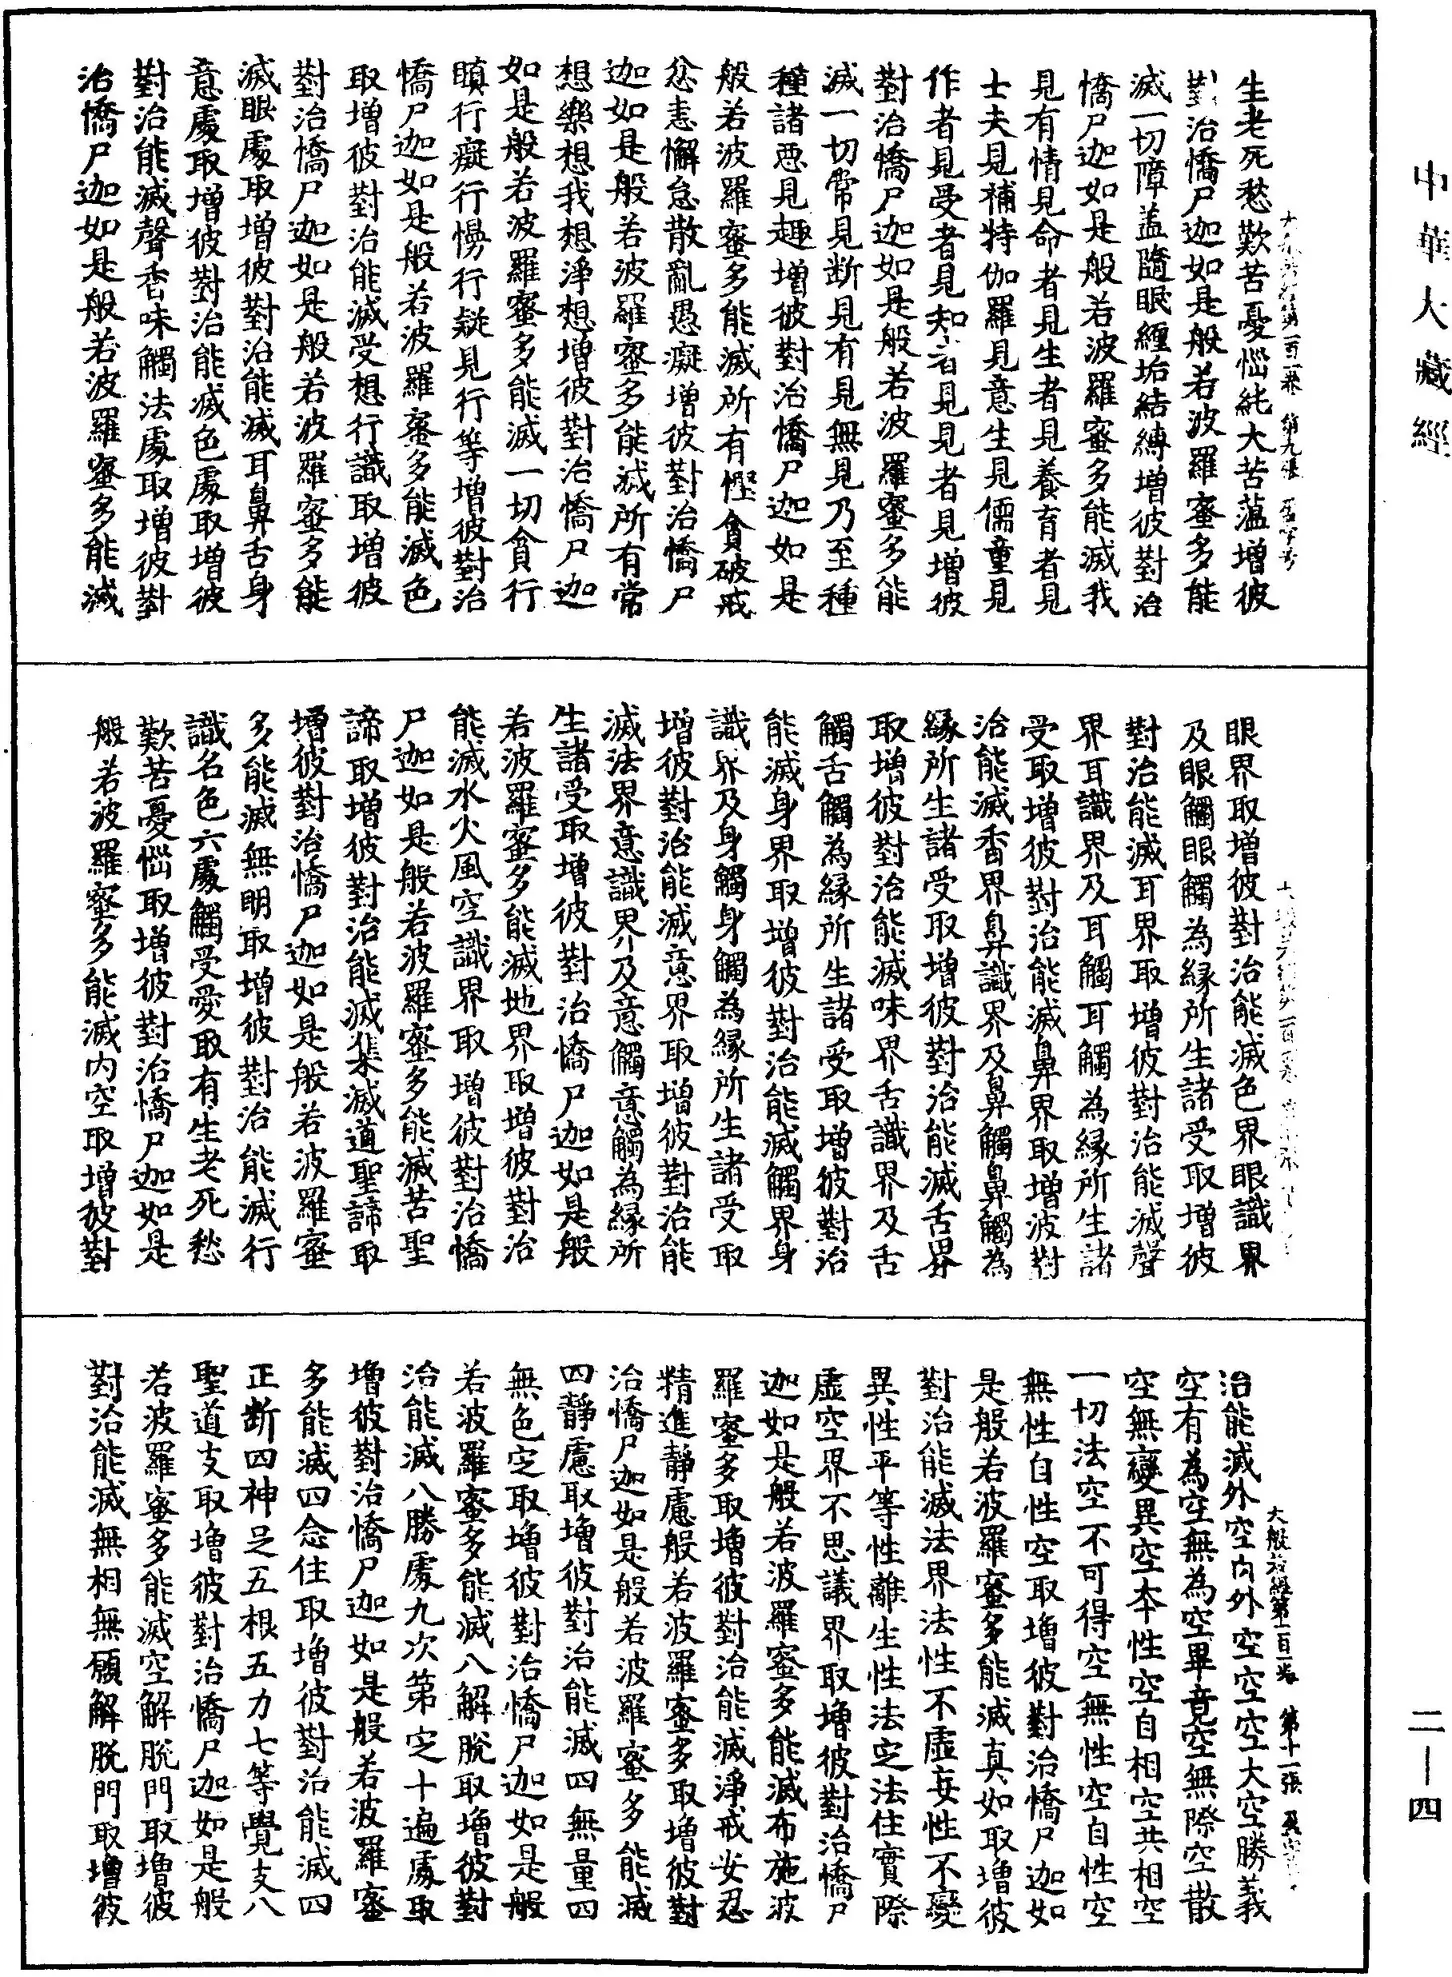 中華大藏經
生老死愁歎苦憂惱純大苦蘊增彼
對治憍尸迦如是般若波羅蜜多能
滅一切障蓋隨眠纏垢結縛增彼對治
憍尸迦如是般若波羅蜜多能滅我
見有情見命者見生者見養育者見
士夫見補特伽羅見意生見儒童見
作者見受者見知者見見者見增彼
對治憍尸迦如是般若波羅蜜多能
滅一切常見斷見有見無見乃至種
種諸惡見趣增彼對治憍尸迦如是
般若波羅蜜多能滅所有慳貪破戒
忿恚懈怠散亂愚癡增彼對治憍尸
迦如是般若波羅蜜多能滅所有常
想樂想我想淨想增彼對治憍尸迦
如是般若波羅蜜多能滅一切貪行
瞋行癡行慢行疑見行等增彼對治
憍尸迦如是般若波羅蜜多能滅色
取增彼對治能滅受想行識取增彼
對治憍尸迦如是般若波羅蜜多能
滅眼處取增彼對治能滅耳鼻舌身
意處取增彼對治能滅色處取增彼
對治能滅聲香味觸法處取增彼對
治憍尸迦如是般若波羅蜜多能滅
眼界取增彼對治能滅色界眼識界
及眼觸眼觸為緣所生諸受取增彼
對治能滅耳界取增彼對治能滅聲
界耳識界及耳觸耳觸為緣所生諸
受取增彼對治能滅鼻界取增彼對
治能滅香界鼻識界及鼻觸鼻觸為
緣所生諸受取增彼對治能滅舌界
取增彼對治能滅味界舌識界及舌
觸舌觸為緣所生諸受取增彼對治
能滅身界取增彼對治能滅觸界身
識界及身觸身觸為緣所生諸受取
增彼對治能滅意界取增彼對治能
滅法界意識界及意觸意觸為緣所
生諸受取增彼對治憍尸迦如是般
若波羅蜜多能滅地界取增彼對治
能滅水火風空識界取增彼對治憍
尸迦如是般若波羅蜜多能滅苦聖
諦取增彼對治能滅集滅道聖諦取
增彼對治憍尸迦如是般若波羅蜜
多能滅無明取增彼對治能滅行
識名色六處觸受愛取有生老死愁
歎苦憂惱取增彼對治憍尸迦如是
般若波羅蜜多能滅內空取增彼對
大般若經第一百二卷 第十一張
治能滅外空內外空空空大空勝義
空有為空無為空畢竟空無際空散
空無變異空本性空自相空共相空
一切法空不可得空無性空自性空
無性自性空取增彼對治憍尸迦如
是般若波羅蜜多能滅真如取增彼
對治能滅法界法性不虛妄性不變
異性平等性離生性法定法住實際
虛空界不思議界取增彼對治憍尸
迦如是般若波羅蜜多能滅布施波
羅蜜多取增彼對治能滅淨戒安忍
精進靜慮般若波羅蜜多取增彼對
治憍尸迦如是般若波羅蜜多能滅
四靜慮取增彼對治能滅四無量四
無色定取增彼對治憍尸迦如是般
若波羅蜜多能滅八解脫取增彼對
治能滅八勝處九次第定十遍處取
增彼對治憍尸迦如是般若波羅蜜
多能滅四念住取增彼對治能滅四
正斷四神足五根五力七等覺支八
聖道支取增彼對治憍尸迦如是般
若波羅蜜多能滅空解脫門取增彼
對治能滅無相無願解脫門取增彼
二—四